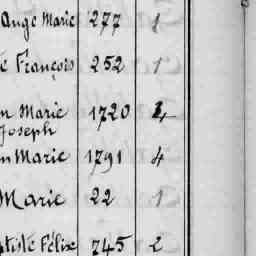 Ange Marie 277 1
François 252 1
Marie 1720 4
Joseph
Marie 1791 4
Marie 22 1
Félix 745 2